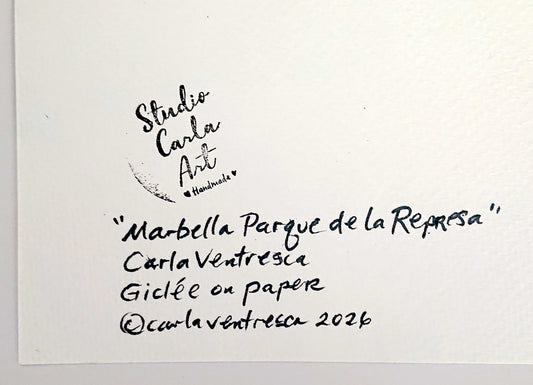 Studio
Carla
Art
♥ Handmade ♥
"Marbella Parque de la Represa"
Carla Ventresca
Giclée on paper
©carlaventresca 2026